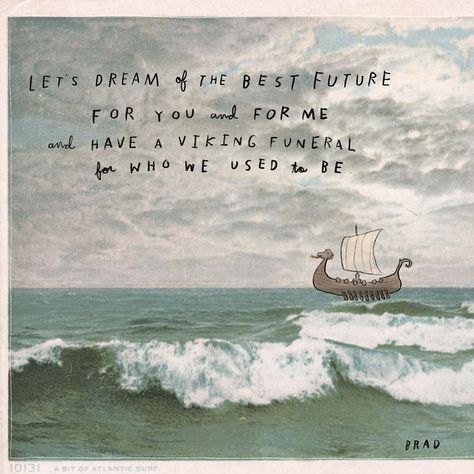 LET'S DREAM of THE BEST FUTURE
FOR YOU and FOR ME
and HAVE A VIKING FUNERAL
for WHO WE USED to BE.
BRAD
10131 A BIT OF ATLANTIC SURF.